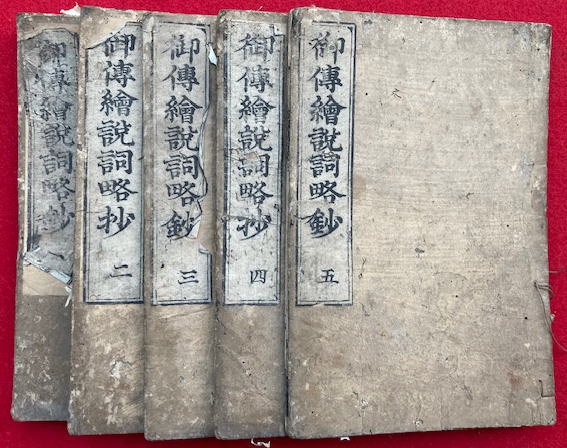 御傳繪説詞略鈔 一
御傳繪説詞略抄 二
御傳繪説詞略鈔 三
御傳繪説詞略抄 四
御傳繪説詞略鈔 五